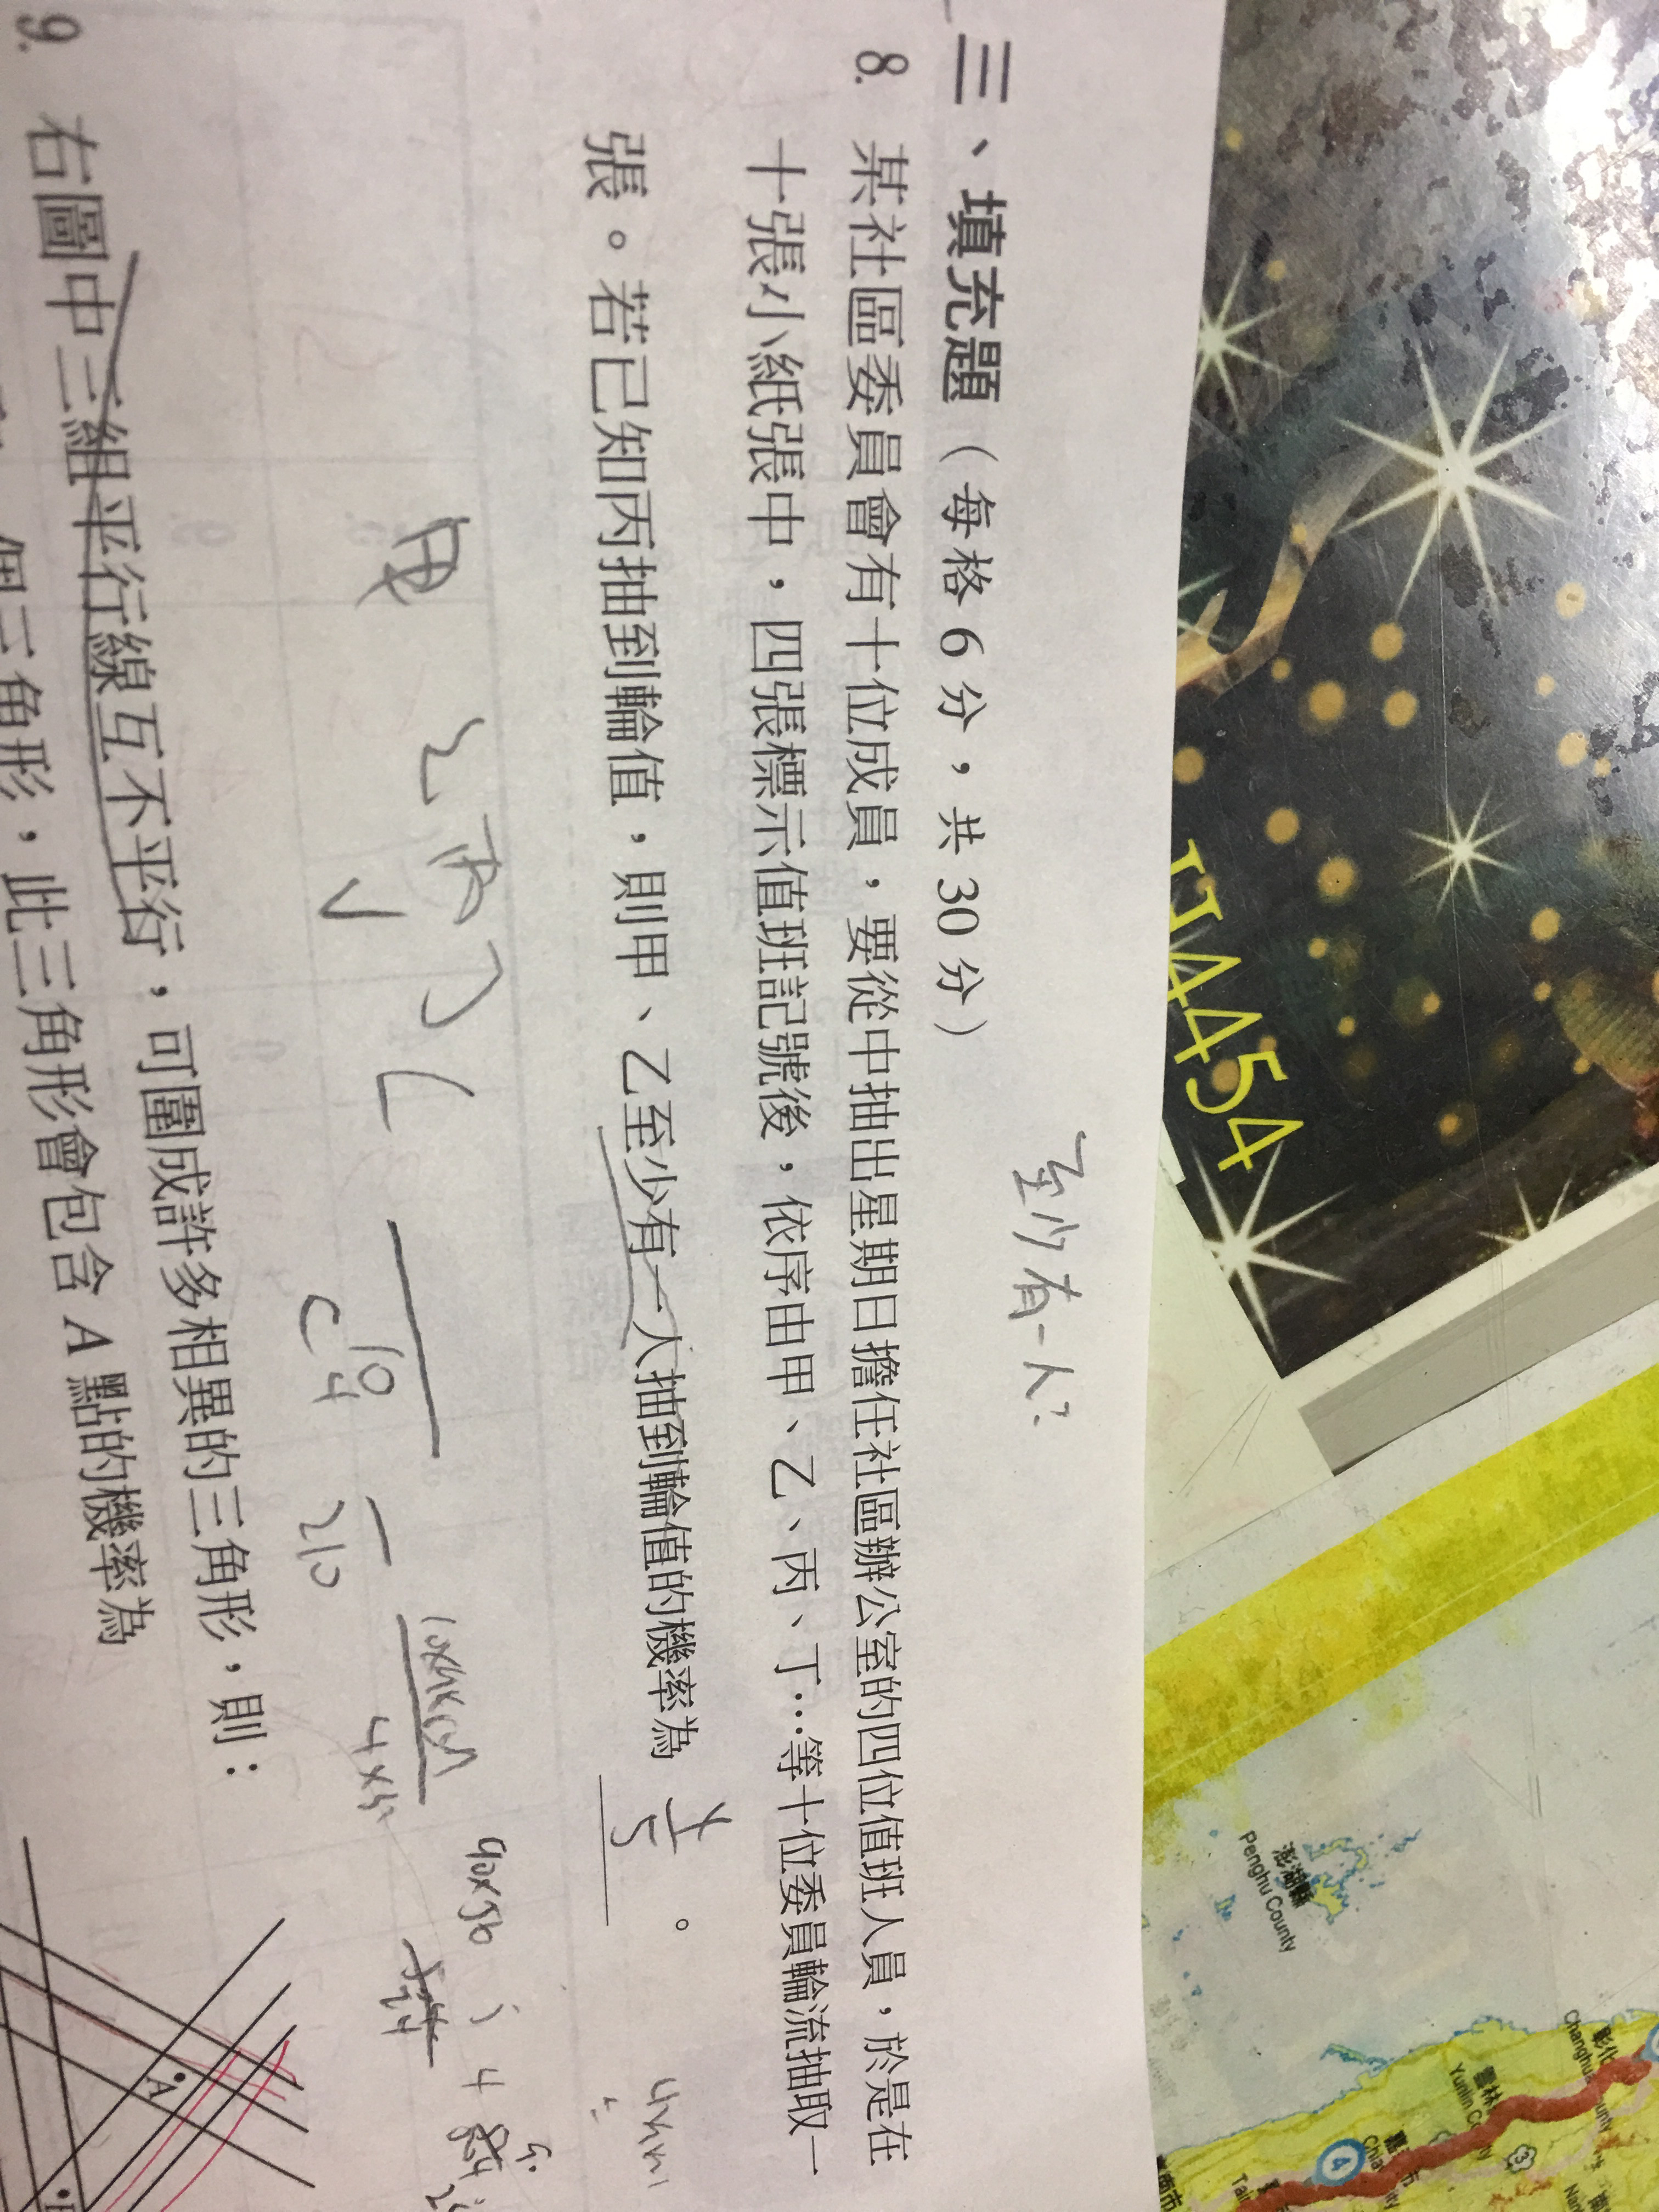 至少有一人?
三、填充題（每格 6 分，共 30 分）
8. 某社區委員會有十位成員，要從中抽出星期日擔任社區辦公室的四位值班人員，於是在
十張小紙張中，四張標示值班記號後，依序由甲、乙、丙、丁…等十位委員輪流抽取一
張。若已知丙抽到輪值，則甲、乙至少有一人抽到輪值的機率為
。
甲 乙 丙 丁
C 10 4
210
9. 右圖中三組平行線互不平行，可圍成許多相異的三角形，則：
個三角形，此三角形會包含 A 點的機率為
A
JJ4454
澎湖縣
Penghu County
彰化
Changhua County
雲林
Yunlin County
3
4